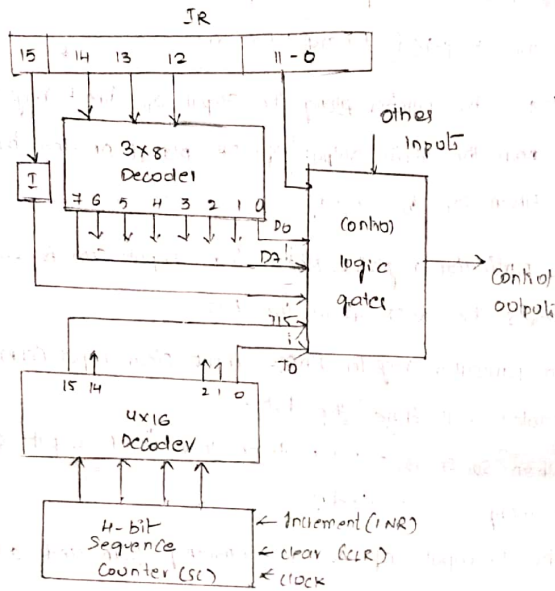 IR
15 14 13 12 11-0
Other
Inputs
3x8
Decoder
7 6 5 4 3 2 1 0
I
D0
D7
Control
logic
gates
Control
outputs
T15
T0
15 14 2 1 0
4x16
Decoder
4-bit
Sequence
Counter (SC)
Increment (INR)
clear (CLR)
clock